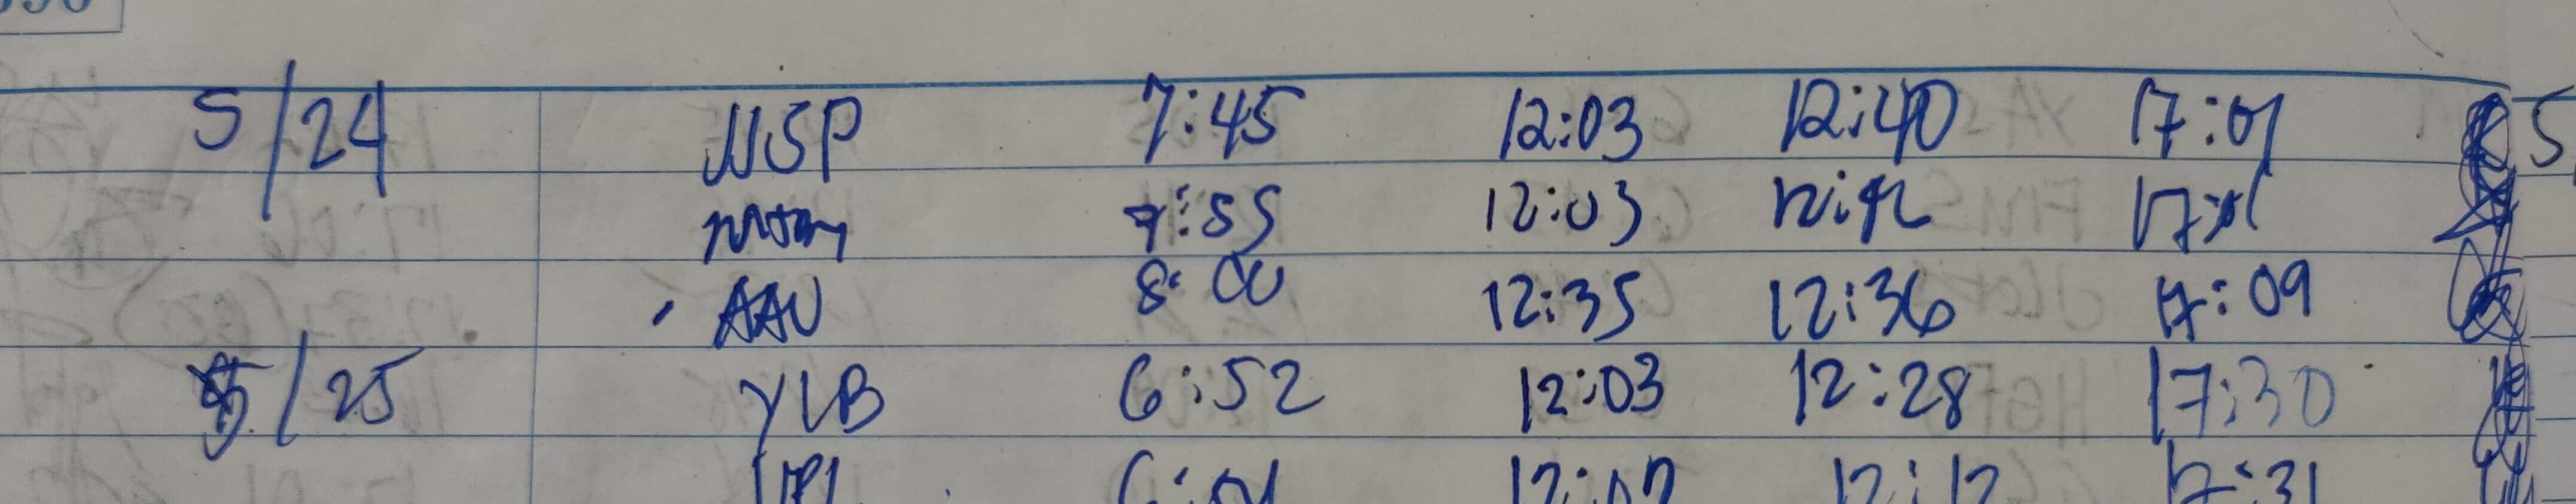 5/24 NSP 7:45 12:03 12:40 17:01
7:55 12:03 12:42
AAU 8:00 12:35 12:36 17:09
5/25 YLB 6:52 12:03 12:28 17:30
12:12 17:31